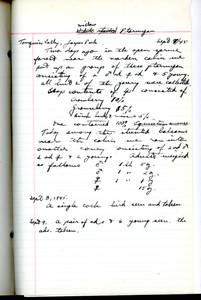 willow
Ptarmigan
Tonquin Valley, Jasper Park Sept 8/45
Two days ago in the open spruce
forest near the warden cabin we
put up a group of these ptarmigan
consisting of a ad ♂ ad ♀ & 5 young,
all but 1 of the young were collected
Crop contents of all consisted of
Crowberry
One contained 100%
Today among the stunted balsams
near the cabin we ran into
another covey consisting of ad ♂
ad ♀ & 6 young. Adults weighed
as follows ♂ 1 lb 5 g.
♂ 1 " 2 g.
♀ 1 " 1 g.
♀ 15 g.
Sept 8, 1945.
A single cock bird seen and taken
Sept 9. A pair of ads & 6 young seen. the
ads. taken.